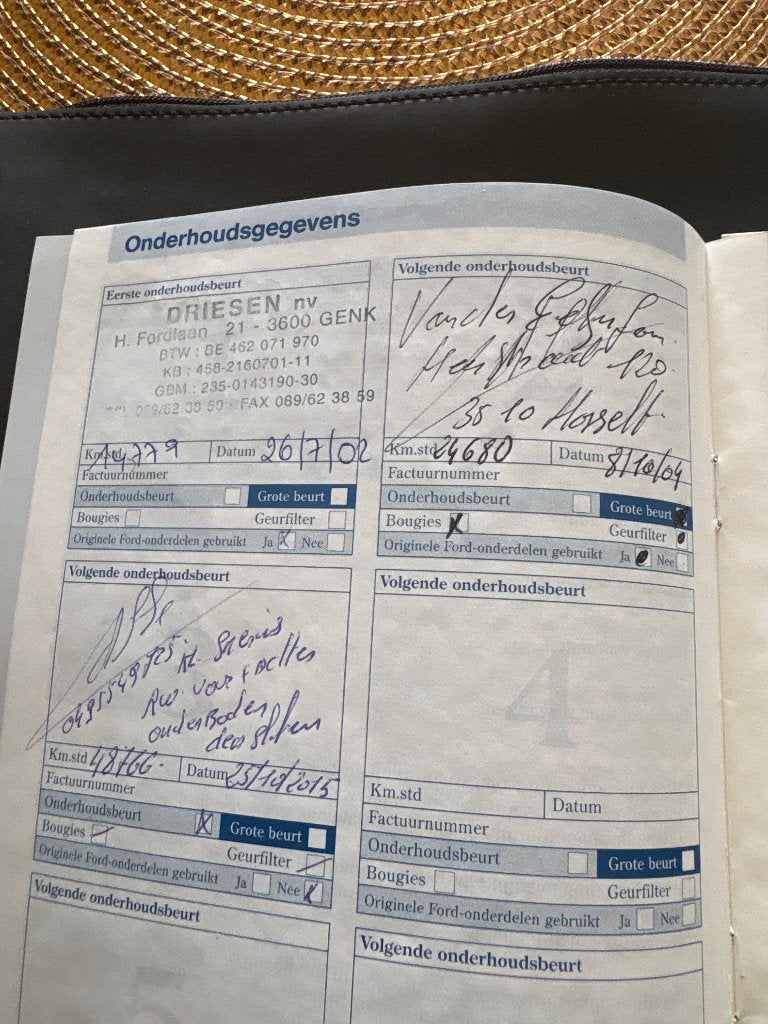 Onderhoudsgegevens
Eerste onderhoudsbeurt
DRIESEN nv
H. Fordlaan 21 - 3600 GENK
BTW : BE 462 071 970
KB : 458-2160701-11
GBM : 235-0143190-30
FAX 089/62 38 59
Km.std 14779 Datum 26/7/02
Factuurnummer
Onderhoudsbeurt Grote beurt
Bougies Geurfilter
Originele Ford-onderdelen gebruikt Ja Nee
Volgende onderhoudsbeurt
120
3510 Hasselt
Km.std 24680 Datum 8/10/04
Factuurnummer
Onderhoudsbeurt Grote beurt
Bougies Geurfilter
Originele Ford-onderdelen gebruikt Ja Nee
Volgende onderhoudsbeurt
Km.std 48766 Datum 25/10/2015
Factuurnummer
Onderhoudsbeurt Grote beurt
Bougies Geurfilter
Originele Ford-onderdelen gebruikt Ja Nee
Volgende onderhoudsbeurt
4
Km.std Datum
Factuurnummer
Onderhoudsbeurt Grote beurt
Bougies Geurfilter
Originele Ford-onderdelen gebruikt Ja Nee
Volgende onderhoudsbeurt
Volgende onderhoudsbeurt